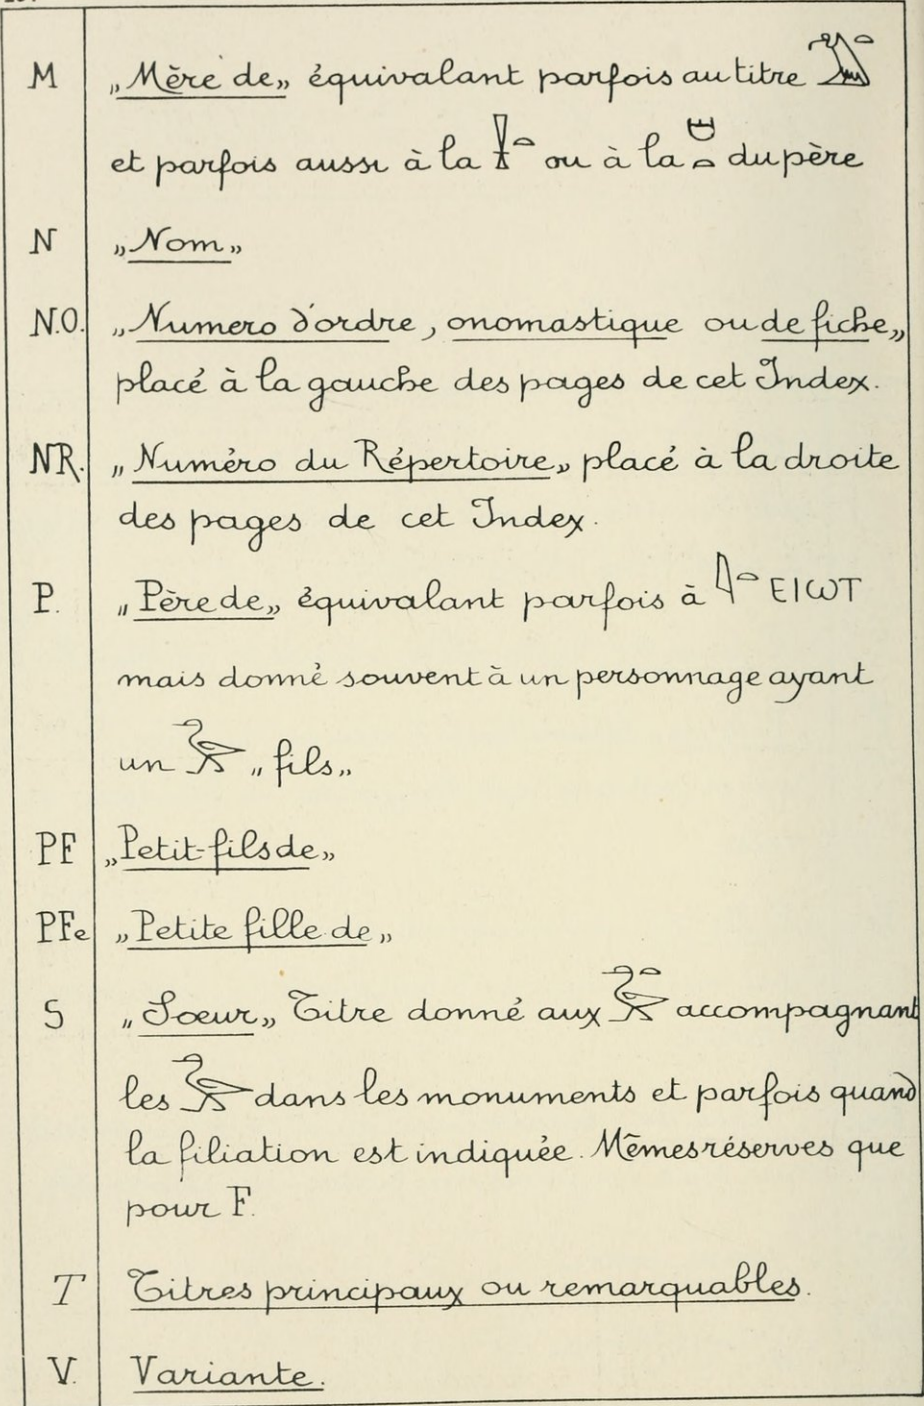 M „Mère de„ équivalant parfois au titre 𓅐𓏏
et parfois aussi à la 𓌢𓏏 ou à la 𓎟𓏏 du père
N „Nom„
N.O. „Numero d'ordre, onomastique ou de fiche„
placé à la gauche des pages de cet Index.
NR. „Numéro du Répertoire„ placé à la droite
des pages de cet Index.
P. „Père de„ équivalant parfois à 𓇋𓏏 ⲈⲒⲰⲦ
mais donné souvent à un personnage ayant
un 𓅭 „fils„
PF „Petit-fils de„
PFe „Petite fille de„
S „Sœur„ Titre donné aux 𓅭𓏏 accompagnant
les 𓅭 dans les monuments et parfois quand
la filiation est indiquée. Mêmes réserves que
pour F.
T Titres principaux ou remarquables.
V. Variante.